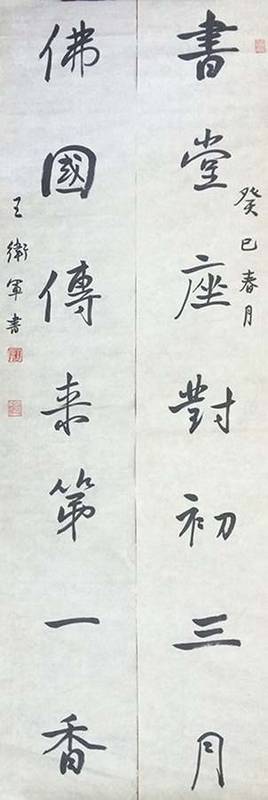 癸巳春月
書堂座對初三月
佛國傳来第一香
王衛軍書